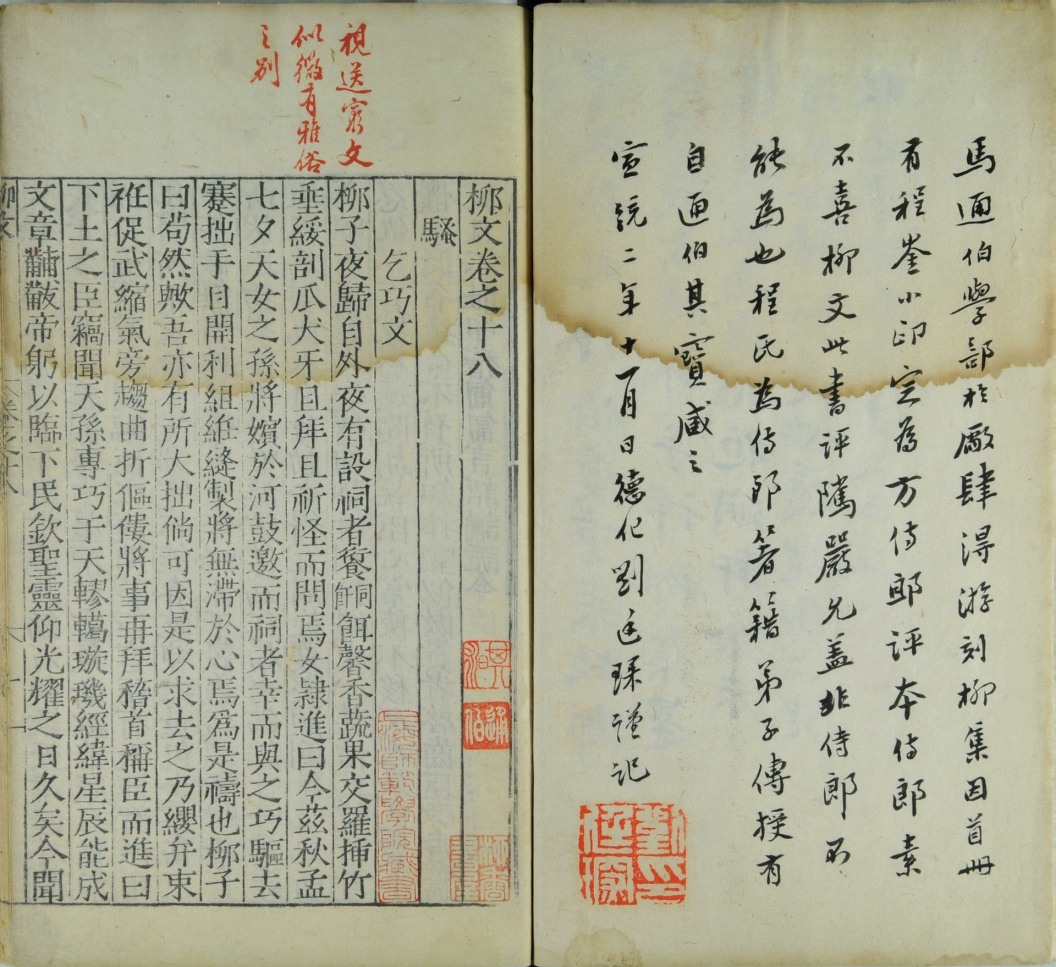 馬通伯學部於廠肆淂游刻柳集因首冊
有程崟小印定為方侍郎評本侍郎素
不喜柳文此書評隲嚴允蓋非侍郎不
能為也程氏為侍郎箸籍弟子傳授有
自通伯其寶臧之
宣統二年十一月日德化劉廷琛謹記
視送窮文
似微有雅俗
之別
柳文卷之十八
騷
乞巧文
柳子夜歸自外夜有設祠者餐餌馨香蔬果交羅揷竹
垂綏剖瓜犬牙且拜且祈怪而問焉女隷進曰今茲秋孟
七夕天女之孫將嬪於河鼓邀而祠者幸而與之巧驅去
蹇拙手目開利組絍縫製將無滯於心焉爲是禱也柳子
曰苟然歟吾亦有所大拙倘可因是以求去之乃纓弁束
袵促武縮氣旁趨曲折傴僂將事再拜稽首稱臣而進曰
下土之臣竊聞天孫專巧于天轇轕璇璣經緯星辰能成
文章黼黻帝躬以臨下民欽聖靈仰光耀之日久矣今聞